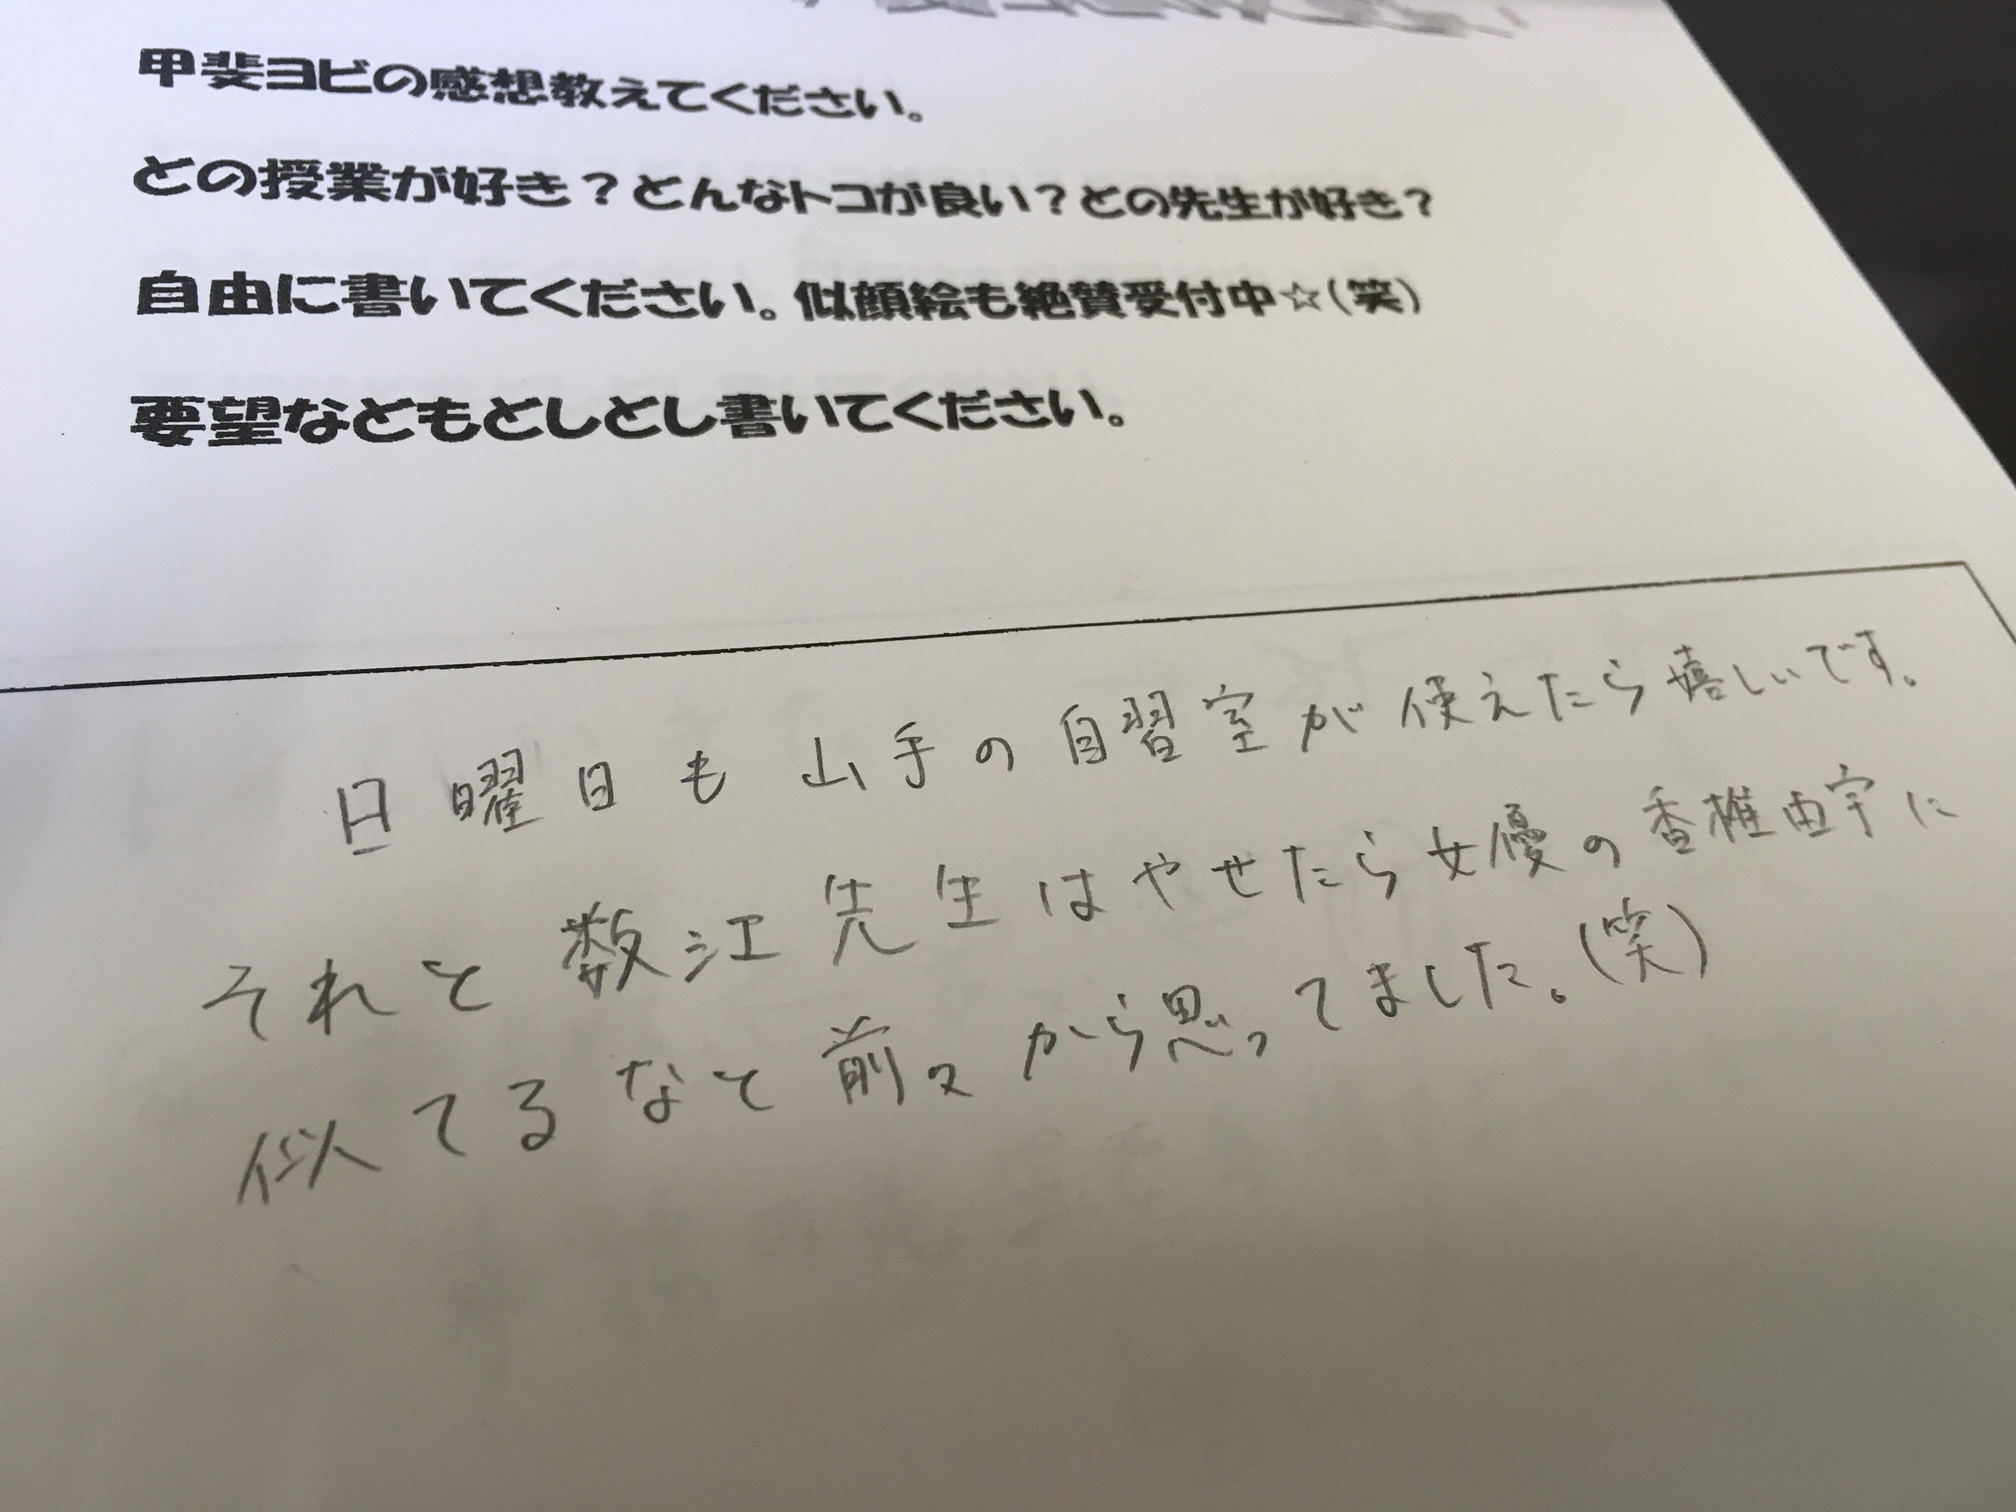 甲斐ヨビの感想教えてください。
どの授業が好き？どんなトコが良い？どの先生が好き？
自由に書いてください。似顔絵も絶賛受付中☆(笑)
要望などもどしどし書いてください。
日曜日も山手の自習室が使えたら嬉しいです。
それと数江先生はやせたら女優の香椎由宇に
似てるなと前々から思ってました。(笑)